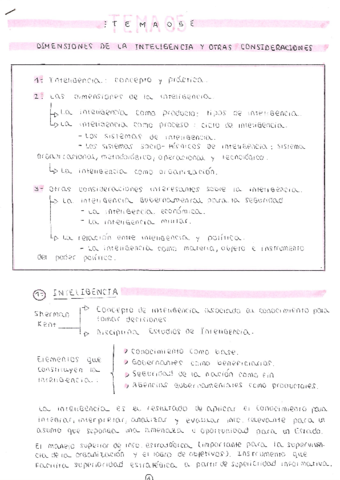 TEMA 05
DIMENSIONES DE LA INTELIGENCIA Y OTRAS CONSIDERACIONES
1- Inteligencia: concepto y práctica.
2- Las dimensiones de la inteligencia.
La inteligencia como producto: tipos de inteligencia.
La inteligencia como proceso: ciclo de inteligencia.
- Los sistemas de inteligencia.
- Los sistemas socio-técnicos de inteligencia: sistema
organizacional, metodológico, operacional y tecnológico.
La inteligencia como organización.
3- Otras consideraciones interesantes sobre la inteligencia.
La inteligencia gubernamental para la seguridad
- La inteligencia económica.
- La inteligencia militar.
La relación entre inteligencia y política.
- La inteligencia como materia, objeto e instrumento
del poder político.
1- INTELIGENCIA
Sherman Kent
Concepto de inteligencia asociado al conocimiento para
tomar decisiones
Disciplina: Estudios de Inteligencia.
Elementos que
constituyen la
inteligencia.
Conocimiento como base.
Gobernantes como beneficiarios.
Seguridad de la nación como fin
Agencias gubernamentales como productores.
La inteligencia es el resultado de aplicar el conocimiento para
interpretar, analizar y evaluar info. relevante para un
asunto que suponga una amenaza u oportunidad para un Estado.
El manejo superior de info estratégica (importante para la supervivencia
de la organización y el logro de objetivos). Instrumento que
facilita superioridad estratégica a partir de superioridad informativa.